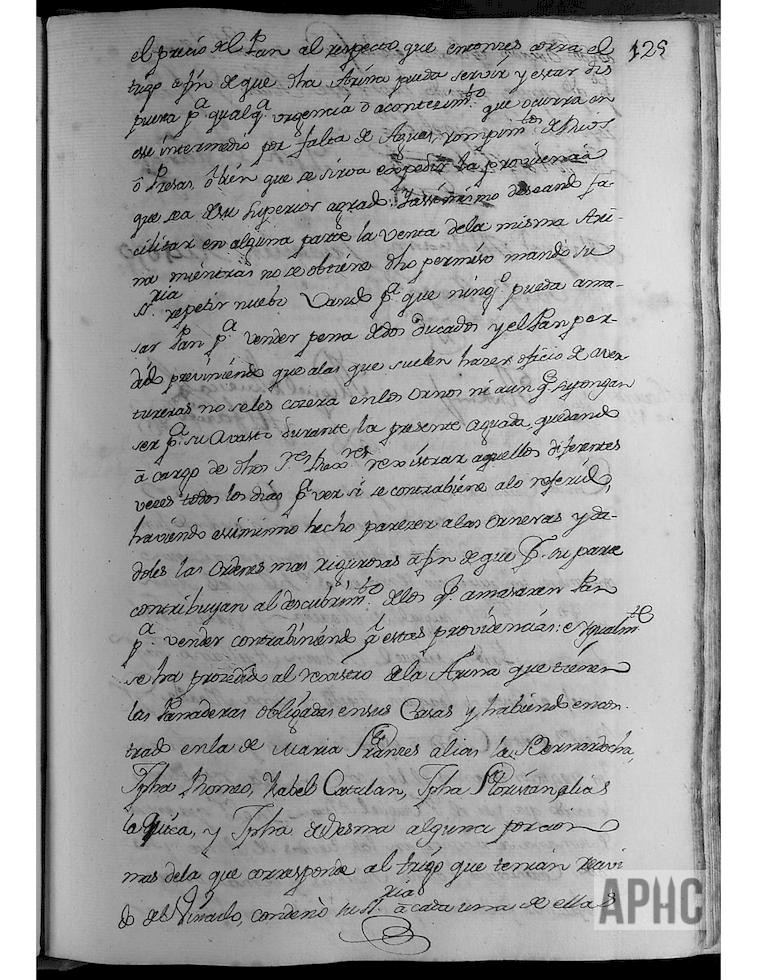 125
el precio del Pan al respecto que entonzes corra el
trigo a fin de que dha Arina pueda servir y estar dis
puesta pª. qualqª. urgencia ò acontezimto. que ocurra en
ese intermedio por falta de Aguas, rompimtos. de Rios
ô Presas, ô bien que se sirva expedir la providencia
que sea de su superior agrado: Y assimismo deseando fa-
cilitar en alguna parte la venta dela misma Ari-
na mientras no se obtiene dho permiso mandò su
Sria. repetir nuebo Vando pª. que ningo. pueda ama-
sar Pan pª. vender pena de dos Ducados y el Pan per-
dido previniendo que alas que suelen hazer oficio de aven-
tureras no seles cozera enlos Ornos ni aun qe. supongan
ser pª. su Avasto durante la presente aguada, quedando
â cargo de dhos Sres. Rexres. rexistrar aquellos diferentes
vezes todos los dias pª. ver si se contrabiene alo referido,
haviendo assimismo hecho parezer alas Orneras y da-
doles las Ordenes mas rigurosas â fin de que Pr. su parte
contribuyan al descubrimto. delos qe. amasaren Pan
pª. vender contrabiniendo â estas providencias: e Ygualmte.
se ha prozedido al rexistro dela Arina que tienen
las Panaderas obligadas ensus Casas y habiendo encon-
trado enla de Maria Franzes alias la Bernardocha,
Jpha Romeo, Ysabel Catalan, Jpha Floristan, alias
la Quica, y Jpha Ledesma alguna porcion
mas dela que corresponde al trigo que tenian rezivi
do del Vinculo, condenò su Sria. â cada una de ellas
APHC